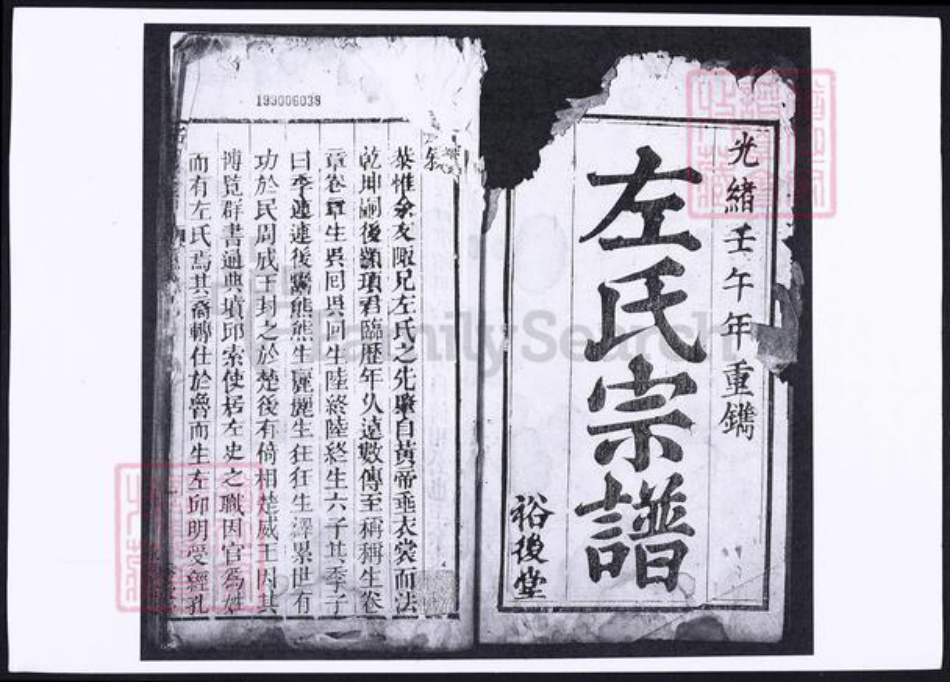 光緒壬午年重鐫
左氏宗譜
裕後堂
193006038
叙
恭惟余友陬兄左氏之先肇自黃帝垂衣裳而法
乾坤嗣後顓頊君臨歷年久遠數傳至稱稱生卷
章卷章生吳回吳回生陸終陸終生六子其季子
曰季連連後鬻熊熊生麗麗生狂狂生澤累世有
功於民周成王封之於楚後有倚相楚威王因其
博覽群書通典墳邱索使居左史之職因官爲姓
而有左氏焉其裔轉仕於魯而生左邱明受經孔
FamilySearch